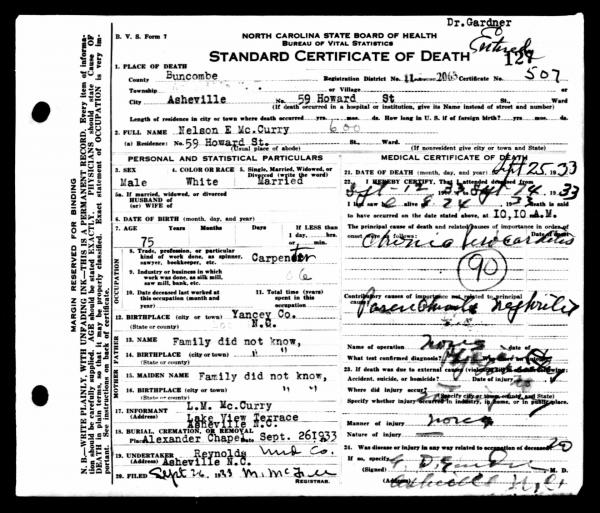 Dr. Gardner
B. V. S. Form 7
NORTH CAROLINA STATE BOARD OF HEALTH
BUREAU OF VITAL STATISTICS
Entered
STANDARD CERTIFICATE OF DEATH
1. PLACE OF DEATH
County Buncombe
Registration District No. Certificate No. 507
Township or Village
City Asheville No. 59 Howard St St., Ward
(If death occurred in a hospital or institution, give its Name instead of street and number)
Length of residence in city or town where death occurred yrs. mos. ds. How long in U. S. if of foreign birth? yrs. mos. ds.
2. FULL NAME Nelson E Mc.Curry 600
(a) Residence: No. 59 Howard St. St., Ward
(Usual place of abode) (If nonresident give city or town and State)
PERSONAL AND STATISTICAL PARTICULARS
3. SEX 4. COLOR OR RACE 5. Single, Married, Widowed, or Divorced (write the word)
Male White Married
5a. If married, widowed, or divorced
HUSBAND of
(or) WIFE of
6. DATE OF BIRTH (month, day, and year)
7. AGE Years Months Days If LESS than 1 day, hrs. or min.
75
8. Trade, profession, or particular kind of work done, as spinner, sawyer, bookkeeper, etc. Carpenter
9. Industry or business in which work was done, as silk mill, saw mill, bank, etc.
10. Date deceased last worked at this occupation (month and year)
11. Total time (years) spent in this occupation
12. BIRTHPLACE (city or town) Yancey Co.
(State or county) N.C.
FATHER
13. NAME Family did not know,
14. BIRTHPLACE (city or town) " "
(State or county)
MOTHER
15. MAIDEN NAME Family did not know,
16. BIRTHPLACE (city or town) " "
(State or county)
17. INFORMANT L.M. Mc.Curry
(Address) Lake View Terrace
Asheville N.C.
18. BURIAL, CREMATION, OR REMOVAL
Place Alexander Chapel Date Sept. 26 1933
19. UNDERTAKER Reynolds Und Co.
(Address) Asheville N.C.
20. FILED Sept 26, 1933
REGISTRAR.
MEDICAL CERTIFICATE OF DEATH
21. DATE OF DEATH (month, day, and year) Sept 25, 1933
22. I HEREBY CERTIFY, That I attended deceased from
I last saw alive on 8 24 death is said
to have occurred on the date stated above, at 10,10 A.M.
The principal cause of death and related causes of importance in order of onset were as follows: Date of onset
Chronic Myocarditis
90
Contributory causes of importance not related to principal cause:
Parenchymatous Nephritis
Name of operation none Date of
What test confirmed diagnosis?
23. If death was due to external causes (violence) fill in also the following:
Accident, suicide, or homicide? Date of injury 19
Where did injury occur?
(Specify city or town, county, and State)
Specify whether injury occurred in industry, in home, or in public place
Manner of injury none
Nature of injury
24. Was disease or injury in any way related to occupation of deceased? no
If so, specify
(Signed) M. D.
(Address) Asheville N.C.
MARGIN RESERVED FOR BINDING
OCCUPATION
N. B.—WRITE PLAINLY, WITH UNFADING INK—THIS IS A PERMANENT RECORD. Every item of information should be carefully supplied. AGE should be stated EXACTLY. PHYSICIANS should state CAUSE OF DEATH in plain terms, so that it may be properly classified. Exact statement of OCCUPATION is very important. See instructions on back of certificate.